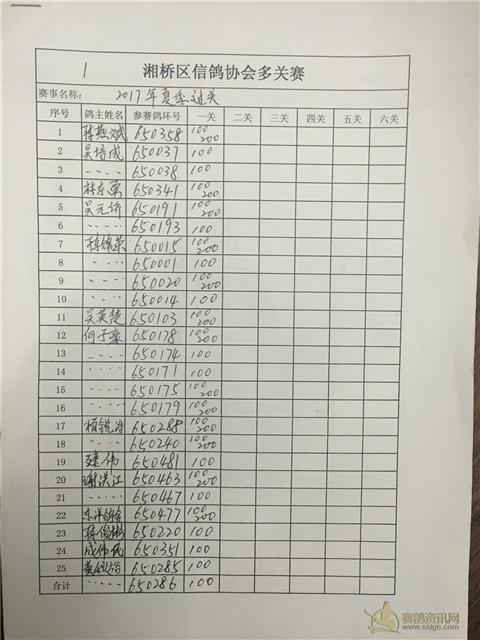 1
湘桥区信鸽协会多关赛
赛事名称: 2017年夏季过关
序号 鸽主姓名 参赛鸽环号 一关 二关 三关 四关 五关 六关
1 650358 100 200
2 吴培成 650037 100 200
3 〃 650038 100
4 林东嵩 650341 100 200
5 吴元侨 650191 100 200
6 〃 650193 100
7 650015 100 200
8 〃 650001 100
9 〃 650020 100 200
10 〃 650014 100
11 吴英楚 650103 100 200
12 何子豪 650178 100 200
13 〃 650174 100
14 〃 650171 100
15 〃 650175 100 200
16 〃 650179 100
17 650288 100 200
18 〃 650240 100 200
19 建伟 650481 100
20 谢洪江 650463 100 200
21 〃 650467 100
22 650477 100 200
23 650220 100
24 650351 100
25 650285 100
合计 〃 650286 100
赛鸽资讯网
www.saige.com